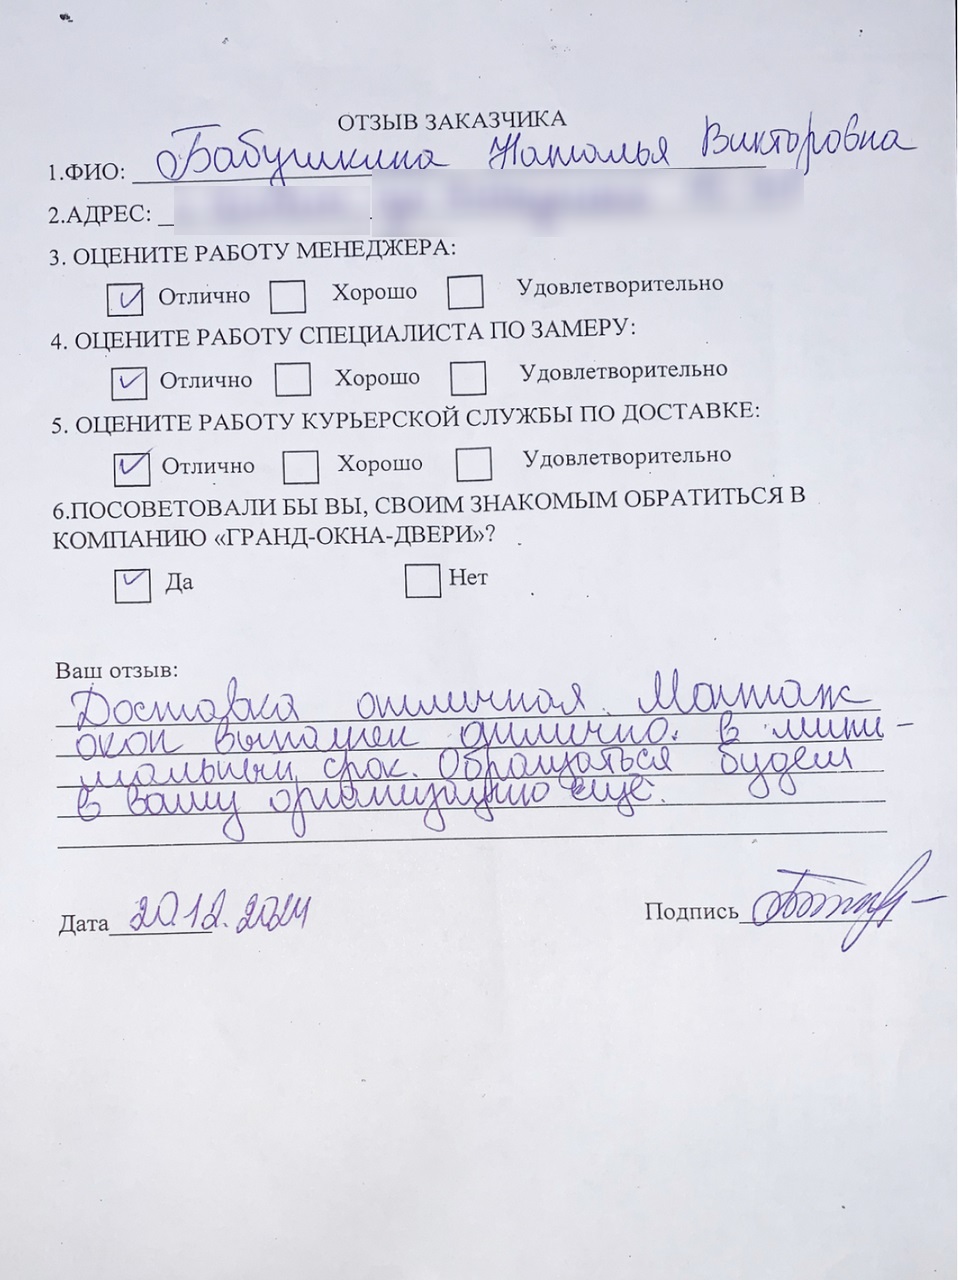 ОТЗЫВ ЗАКАЗЧИКА
1.ФИО: Бабушкина Наталья Викторовна
2.АДРЕС:
3. ОЦЕНИТЕ РАБОТУ МЕНЕДЖЕРА:
Отлично Хорошо Удовлетворительно
4. ОЦЕНИТЕ РАБОТУ СПЕЦИАЛИСТА ПО ЗАМЕРУ:
Отлично Хорошо Удовлетворительно
5. ОЦЕНИТЕ РАБОТУ КУРЬЕРСКОЙ СЛУЖБЫ ПО ДОСТАВКЕ:
Отлично Хорошо Удовлетворительно
6.ПОСОВЕТОВАЛИ БЫ ВЫ, СВОИМ ЗНАКОМЫМ ОБРАТИТЬСЯ В
КОМПАНИЮ «ГРАНД-ОКНА-ДВЕРИ»?
Да Нет
Ваш отзыв:
Доставка отличная. Монтаж
окон выполнен отлично. в мини-
мальный срок. Обращаться будем
в вашу организацию еще.
Дата 20.12.2024 Подпись